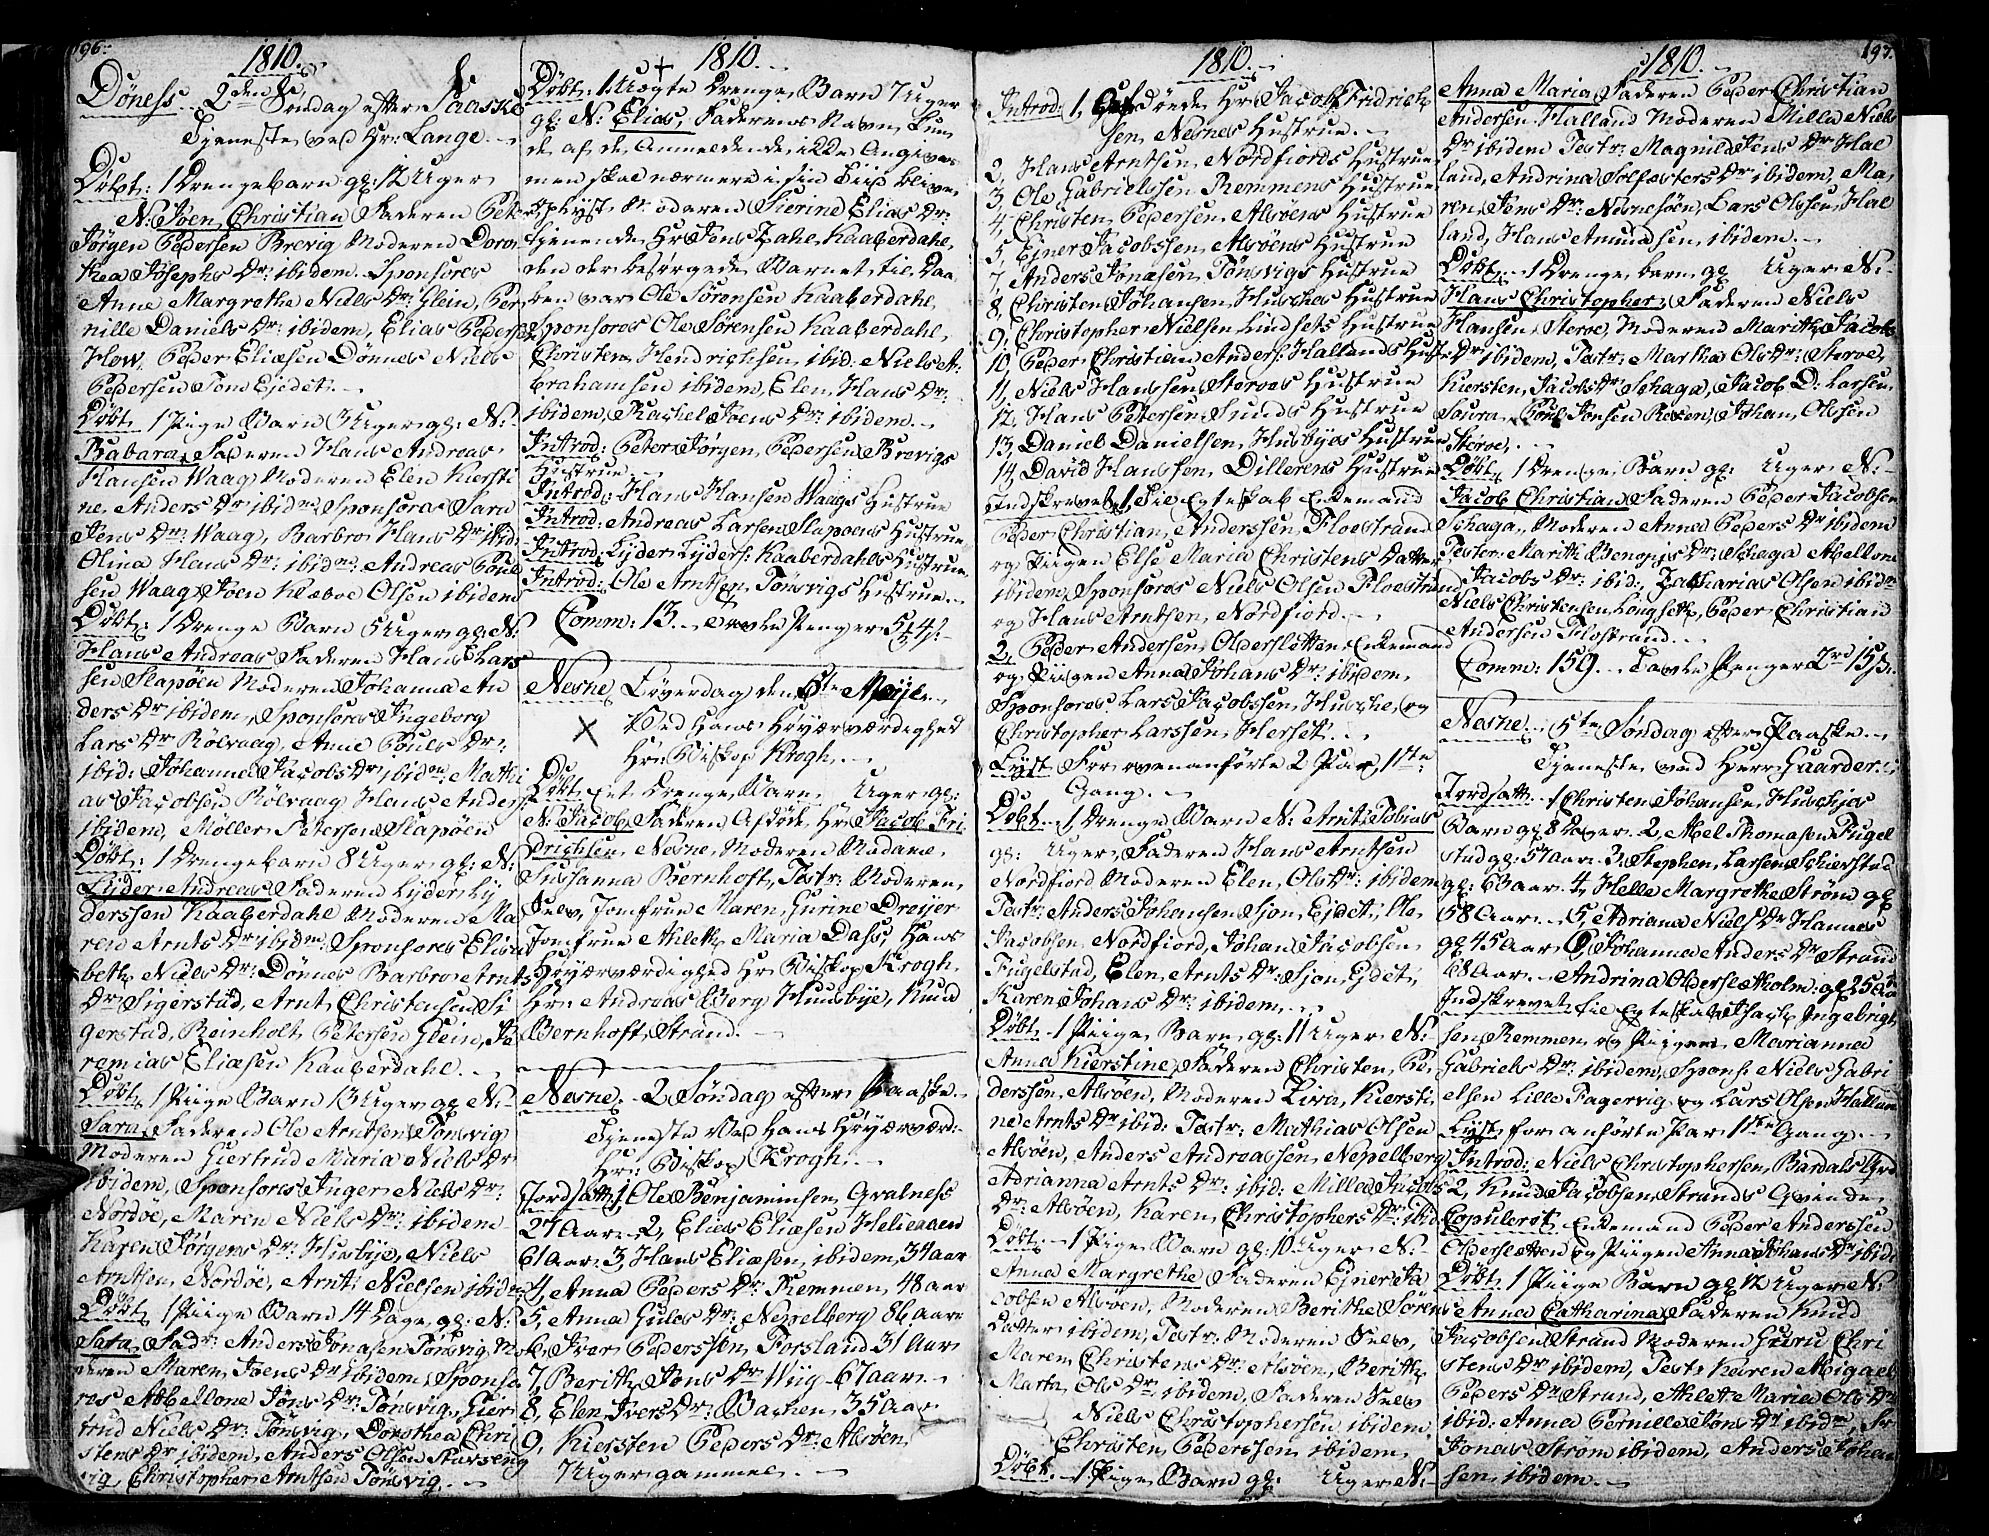 196:
1810.
Döness. 2den Söndag efter Paaske
Tjeneste ved Hr: Lange.
Döbt: 1 Drengebarn gl: 12 Uger
N: Joen Christian Faderen Peter
Jörgen Pedersen Brevig Moderen Doro
thea Josephs Dr: ibidem. Sponsores
Anne Margrethe Niels Dr: Glein, Per
nille Daniels Dr: ibidem, Elias Peders:
How, Peder Eliæsen Dönnes Niels
Pedersen Tom Ejdet.
Döbt 1 Pige Barn 3 Uger gl: N:
Babara, Faderen Hans Andreas
Hansen Waag Moderen Elen Kiersti
ne Anders Dr ibidm: Sponsores Sara
Jens Dr: Waag, Barbro Hans Dr ibid:
Olina Hans Dr: ibidm: Andreas Poul
sen Waag Joen Klæboe Olsen ibidem
Döbt: 1 Drenge Barn 5 Uger gl: N:
Hans Andreas Faderen Hans Lars
sen Slapöen Moderen Johanna An
ders Dr ibidem, Sponsores Ingeborg
Lars Dr Rölvaag, Anne Pouls Dr:
ibid: Johanna Jacobs Dr ibidm: Mathi
as Jacobsen Rölvaag Hans Anders:
ibidem, Möller Petersen Slapöen
Döbt: 1 Drengebarn 8 Uger gl: N:
Lyder Andreas Faderen Lyder Ly
derssen Kaaberdahl Moderen Ma
ren Arnts Dr ibidm: Sponsores Elisa
beth Niels Dr: Dönnes Barbro Arnts
Dr Sigerstad, Arnt Christensen Si
gerstad, Reinholt Petersen Glein, Je
remias Eliæsen Kaaberdahl.
Döbt 1 Piige Barn 13 Uger gl N:
Sara, Faderen Ole Arntsen Tönsvig
Moderen Giertrud Maria Niels Dr
ibidem, Sponsores Inger Niels Dr:
Nordöe, Maren Niels Dr: ibidem
Karen Jörgens Dr: Husbye, Niels
Arntsen Nordöe, Arnt Nielsen ibidm:
Döbt 1 Piige Barn 14 Dage gl: N:
Sara Fadr: Anders Jonasen Tönsvig Mo
deren Maren Joens Dr ibidem Sponso
res Abbellone Jöns Dr: Tönsvig, Gier
trud Niels Dr: Tönsvig, Dorothea Chri
stens Dr ibidem, Anders Olsen Starseng
vig, Christopher Arntsen Tönsvig.
1810.
Döbt: 1 Uægte Drenge Barn 7 Uger
gl: N: Elias, Faderens Navn kun
de af de Anmeldende ikke Angives
men skal nærmere i sin Tiid blive
oplyst Moderen Sierine Elias Dr:
tjenende Hr Jens Zahl Kaaberdahl,
den der besörgede Barnet til Daa
ben var Ole Sörensen Kaaberdahl,
Sponsores Ole Sörensen Kaaberdahl,
Christen Hendrichsen ibid: Niels A:
brahamsen ibidem, Elen Hans Dr:
ibidem, Rachel Joens Dr: ibidem.
Introd: Peter Jörgen Pedersen Brevigs
Hustrue
Introd: Hans Hansen Waags Hustrue
Introd: Andreas Larsen Slapöens Hustrue
Introd: Lyder Lyders: Kaaberdahls Hustrue
Introd: Ole Arntsen Tönsvigs Hustrue.
Comm: 13. Tavle Penger
Nesne Löverdag den 5te Maji
Ved Hans Höyærværdighed
Hr: Biskop Krogh.
Döbt et Drenge Barn Uger gl:
N: Jacob Faderen Afdöde Hr Jacob Fri
drichsen Nesne, Moderen Madame
Susanna Bernhoft, Testr: Moderen
Selv, Jomfrue Maren Gurine Dreyer
Jomfrue Athleth Maria Dass, Hans
Höyærværdighed Hr Biskop Krogh,
Hr: Andreas Berg Huusbye, Knud
Bernhoft, Strand.
Nesne 2 Söndag efter Paaske
Tjeneste Ved Hans Höyærværd:
Hr: Biskop Krogh.
Jordsatt 1 Ole Benjaminsen Gralness
27 Aar. 2, Elias Eliæsen
61 Aar 3, Hans Eliæsen, ibidem, 34 aar
4, Anna Peders Dr: Remmen, 48 aar
5, Anna Guls Dr: Neppelberg 86 aar
6, Iver Pedersen, Forsland 31 Aar
7, Berith Jens Dr: Wiig 67 aar.
8, Elen Ivers Dr: Bachen, 35 Aar
9, Kiersten Peders Dr: Alsöen
7 Uger gammel.
1810.
Introd: 1, Afdöde Hr: Jacob Fridrich
sen, Nesnes Hustrue.
2, Hans Arntsen Nordfiords Hustrue
3, Ole Gabrielssen Remmens Hustrue
4, Christen Pedersen Alsöens Hustrue
5, Ejner Jacobssen Alsöens Hustrue
7, Anders Jonæsen, Tönsvigs Hustrue
8, Christen Johansen Huschas Hustrue
9, Christopher Nielsen Lindsets Hustrue
10, Peder Christian Anders: Hallands Hust:
11, Niels Hanssen Steroes Hustrue
12, Hans Petersen Sunds Hustrue
13, Daniel Danielsen, Husbyes Hustrue
14, David Hanssen, Dillerens Hustrue
Indskrevet 1, Til Egteskab Enkemand
Peder Christian Anderssen Floestrand
og Piigen Else Maria Christens Datter
ibidem, Sponsores Niels Olsen Floestrand
og Hans Arntsen, Nordfiord.
2, Peder Andersen, Olderslettens Enkemand
og Piigen Anna Johans Dr: ibidem.
Sponsores Lars Jacobssen Husche, og
Christopher Larssen, Herset.
Lyst For ovenanförte 2 Par, 1ste
Gang.
Döbt 1, Drenge Barn N: Arnt Tobias
gl: Uger, Faderen Hans Arntsen
Nordfiord Moderen Elen, Ols Dr: ibidem
Testr: Anders Johansen Sjon, Ejdet, Ole
Jacobsen Nordfiord, Johan Jacobsen
Fugelstad, Elen, Arnts Dr: Sjon, Ejdet,
Karen Johans Dr: ibidem,
Döbt 1 Piige Barn gl: 11 Uger N:
Anna Kierstine, Faderen Christen Pe
derssen, Alsöen, Moderen Ziva, Kiersti
ne Arnts Dr ibid: Testr: Mathias Olsen
Alsöen, Anders Andreassen, Neppelberg
Adrianna Arnts Dr: ibid: Milla Jacobs
Dr: Alsöen, Karen, Christophers Dr: ibid:
Döbt 1 Pige Barn gl: 10 Uger N:
Anna Margrethe Faderen Ejner Ja
cobsen Alsöen, Moderen Berithe Sörens
Datter ibidem, Testr: Moderen Selv,
Maren Christens Dr: Alsöen, Berith
Marta, Ols Dr: ibidem, Faderen Selv
Niels Christophersen ibidem,
Christen Pederssen ibidem,
Döbt 1 Pige Barn gl: Uger N:
1810.
197.
Anna Maria, Faderen Peder Christian
Andersen Halland Moderen Milla Niels
Dr ibidem Testr: Magnild Jens Dr Hal
land, Andrina Solfæsters Dr ibidem, Ma
ren Jens Dr: Nesnesöen, Lars Olsen, Hal
land, Hans Amundsen, ibidem.
Döbt 1 Drenge barn gl Uger N:
Hans Christopher, Faderen Niels
Hansen, Steroe, Moderen Marith Jacobs
Dr ibidem, Testr: Martha Ols Dr: Steroe,
Kiersten, Jacobs Dr Schaga, Jacob D: Larsen
Soura, Poul Jonsen Rosen, Johan, Olssen
Steroe,
Döbt, 1 Drenge Barn gl: Uger N:
Jacob Christian Faderen Peder Jacobsen
Schaga, Moderen Anna Peders Dr ibidem
Testr: Marith Benonjs Dr: Schaga Abellone
Jacobs Dr: ibid:, Zacharias Olsen ibidm
Niels Christensen Longsett, Peder Christian
Andersen Flostrand.
Comm: 159. Tavle Penger 2rd 15ß:
Nesne. 5te Söndag efter Paaske.
Tjeneste ved Herr Gaarder.
Jordsatt 1 Christen Johansen, Huschjas
Barn gl 8 Dager. 2, Abel Thomasen Fugel
stad gl: 57 aar. 3, Stephen Larsen Schierstad
gl: 63 aar. 4, Helle Margrethe Ström gl
58 Aar. 5, Adriana Niels Dr Hannæs
gl 45 Aar 6, Johanna Anders Dr Strand
68 Aar. Andrina Olderskatholm: gl 25 aar
Indskrevet til Egteskab Isach Ingebrigt
sen Remmen og Piigen Marianna
Gabriels Dr: ibidem, Spons: Niels Gabri
elsen Lille Fagervig og Lars Olsen Halland
Lyst for anförte Par 1ste Gang.
Introd: Niels Christophersen, Bardals Qvd
2, Knud Jacobsen Strands Qvinde
Copuleret, Enkemand Peder Anderssen
Oldersletten og Piigen Anna Johans Dr ibid:
Döbt 1 Piige Barn gl 12 Uger N:
Anna Catharina Faderen Knud
Jacobsen Strand Moderen Guru Chri
stens Dr ibidem, Test: Karen Abigael
Peders Dr Strand, Athlet Maria Ols Dr
ibid: Anna Pernille Jons Dr ibidm,
Jonas Ström ibidem, Anders Johan
sen, ibidem.